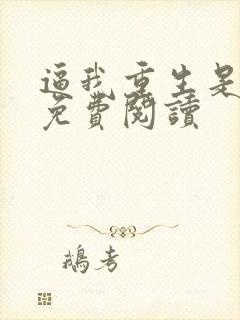 逼我重生是
免費閱讀
鵝考